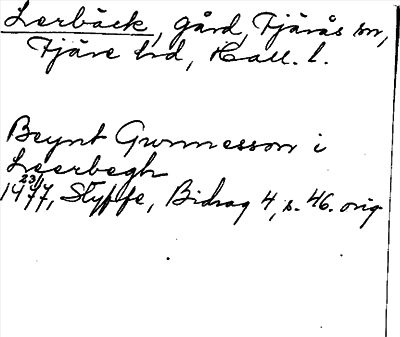 Lerbäck, gård, Fjärås sn,
Fjäre hd, Hall. l.
Beynt Gunnesson i
Leerbegh
23/1
1477, Styffe, Bidrag 4, s. 46. orig